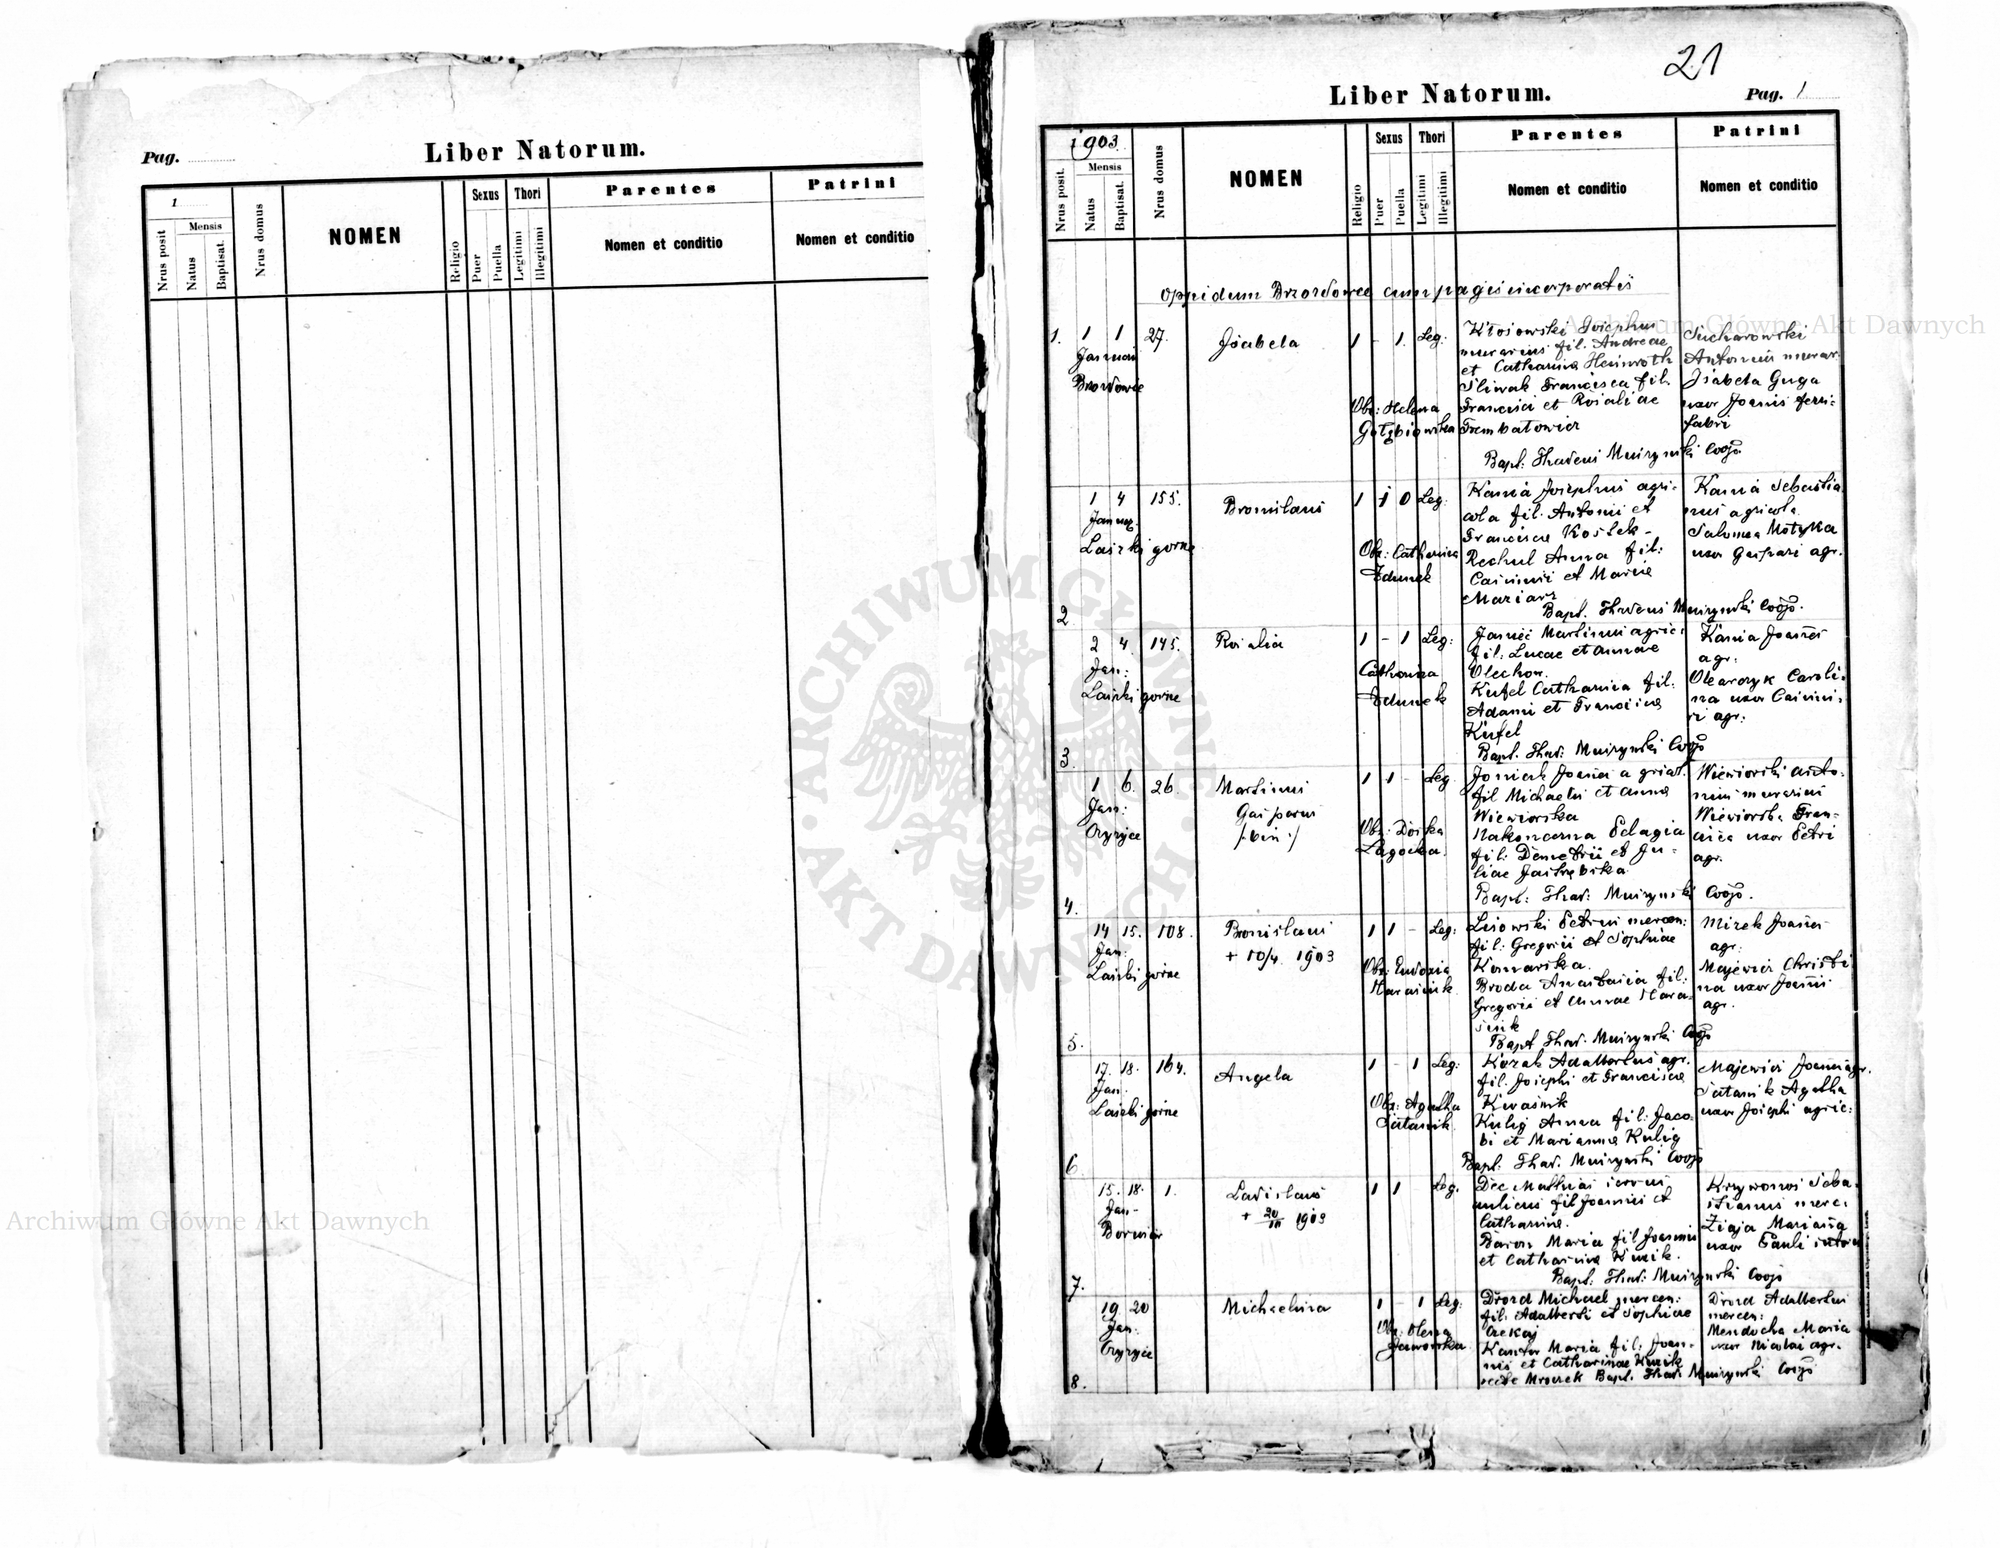 Pag.
Liber Natorum.
1
Mensis
Nrus posit
Natus
Baptisat.
Nrus domus
NOMEN
Religio
Sexus
Puer
Puella
Thori
Legitimi
Illegitimi
Parentes
Nomen et conditio
Patrini
Nomen et conditio
21
Liber Natorum.
Pag. 1
1903.
Mensis
Nrus posit.
Natus
Baptisat.
Nrus domus
NOMEN
Religio
Sexus
Puer
Puella
Thori
Legitimi
Illegitimi
Parentes
Nomen et conditio
Patrini
Nomen et conditio
Oppidum Brzozdowce cum pagis incorporatis
1. 1 1 27. Isabela 1 - 1. Leg:
Januari
Kłosowski Josephus
murarius fil. Andreae
et Catharina Heinroth
Sliwak Francisca fil.
Francisci et Rosaliae
Trembatowicz
Obs: Helena
Sucharowski
Antonius murar.
Isabela Guga
uxor Joannis ferri-
fabri
Bapt: Thadeus Muszynski Coop.
2 1 4 155. Bronislaus 1 1 0 Leg.
Januar.
Laszki gorne
Kania Josephus agri-
cola fil. Antonii et
Francisca
Rechul Anna fil:
Casimiri et Maria
Mariasz
Obs: Catharina
Zdunek
Kania Sebastia
nus agricola
Salomea Motyka
uxor Gaspari agr.
Bapt. Thadeus Muszynski Coop.
3. 2 4. 145. Rosalia 1 - 1 Leg:
Jan:
Laszki gorne
Martinus agric:
fil: Lucae et Annae
Olechon.
Kufel Catharina fil:
Adami et Francisca
Kufel
Catharina
Zdunek
Kania Joannes
agr:
Olearczyk Caroli-
na uxor Casimi-
ri agr:
Bapt. Thad. Muszynski Coop
4. 1 6. 26. Martinus 1 1 - Leg
Jan:
Czyżyce
Gasparus
/:bin:/
fil Michaelis et Anna
Wiewiorska
Nakoneczna Pelagia
fil: Demetrii et Ju-
liae Jastrzębska
Wiewiorski Anto-
nius murarius
Wiewiorska Fran-
cisca uxor Petri
agr.
Bapt: Thad: Muszynski Coop.
5. 14 15. 108. Bronislaus 1 1 - Leg:
Jan:
Laszki gorne
+ 10/4. 1903
Lisowski Petrus mercen:
fil: Gregorii et Sophiae
Komarska.
Broda Anastasia fil:
Gregorii et Annae Hara-
simk
Obs: Eudoxia
Mirek Joannes
agr:
Majewicz Christi
na uxor Joannis
agr.
Bapt Thad. Muszynski Coop
6. 17. 18. 164. Angela 1 - 1 Leg:
Jan:
Laszki gorne
Kozak Adalbertus agr.
fil. Josephi et Francisca
Kwasnik
Kulig Anna fil: Jaco-
bi et Marianna Kulig
Obs: Agatha
Satanik
Majewicz Joannes agr.
Satanik Agatha
uxor Josephi agric:
Bapt. Thad. Muszynski Coop
7. 15. 18. 1. Ladislaus 1 1 Leg.
Jan-
+ 20/III 1903
Dec Mathias
fil Joannis et
Catharina.
Baran Maria fil Joannis
et Catharina Kuzik.
Krzywonos Seba-
stianus merc:
Ziaja Marianna
uxor Pauli
Bapt: Thad: Muszynski Coop
8. 19 20 Michaelina 1 - 1 Leg:
Jan:
Czyżyce
Drozd Michael mercen:
fil: Adalberti et Sophiae
Czekaj
Kantor Maria fil: Joan-
nis et Catharinae Kuzik
recte Mroczek Bapt. Thad: Muszynski Coop
Obs: Olena
Jaworska
Drozd Adalbertus
mercen:
Mendocha Maria
uxor Nicolai agr.
Archiwum Główne Akt Dawnych
Archiwum Główne Akt Dawnych
· ARCHIWUM GŁÓWNE · AKT DAWNYCH